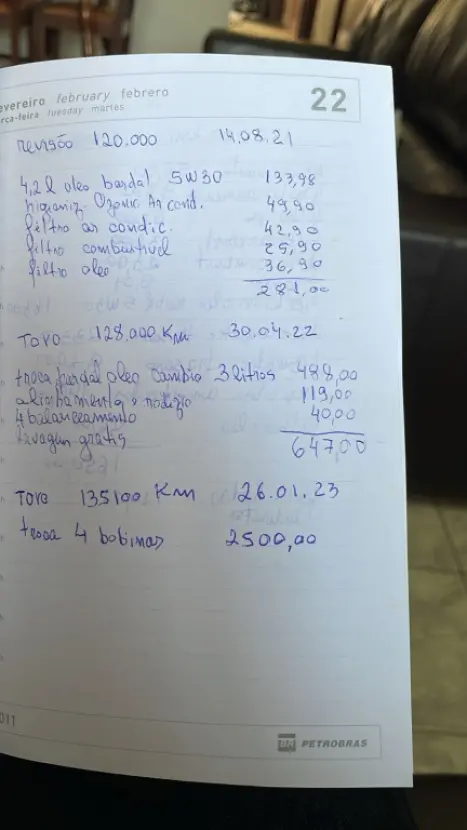 evereiro february febrero
rça-feira tuesday martes
22
revisão 120.000 14.08.21
4,2 l oleo bardal 5W30 133,98
higieniz. Ozonic Ar cond. 49,90
filtro ar condic. 42,90
filtro combustivel 25,90
filtro oleo 36,90
281,00
Toro 128.000 Km 30.04.22
troca parcial oleo cambio 3 litros 488,00
alinhamento, rodizio 119,00
4 balanceamento 40,00
lavagem gratis
647,00
Toro 135100 Km 26.01.23
troca 4 bobinas 2500,00
011
BR PETROBRAS